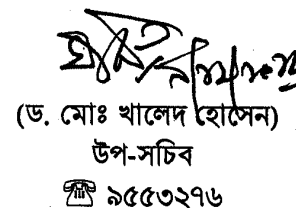 (ড. মোঃ খালেদ হোসেন)
উপ-সচিব
☏ ৯৫৫৩২৭৬